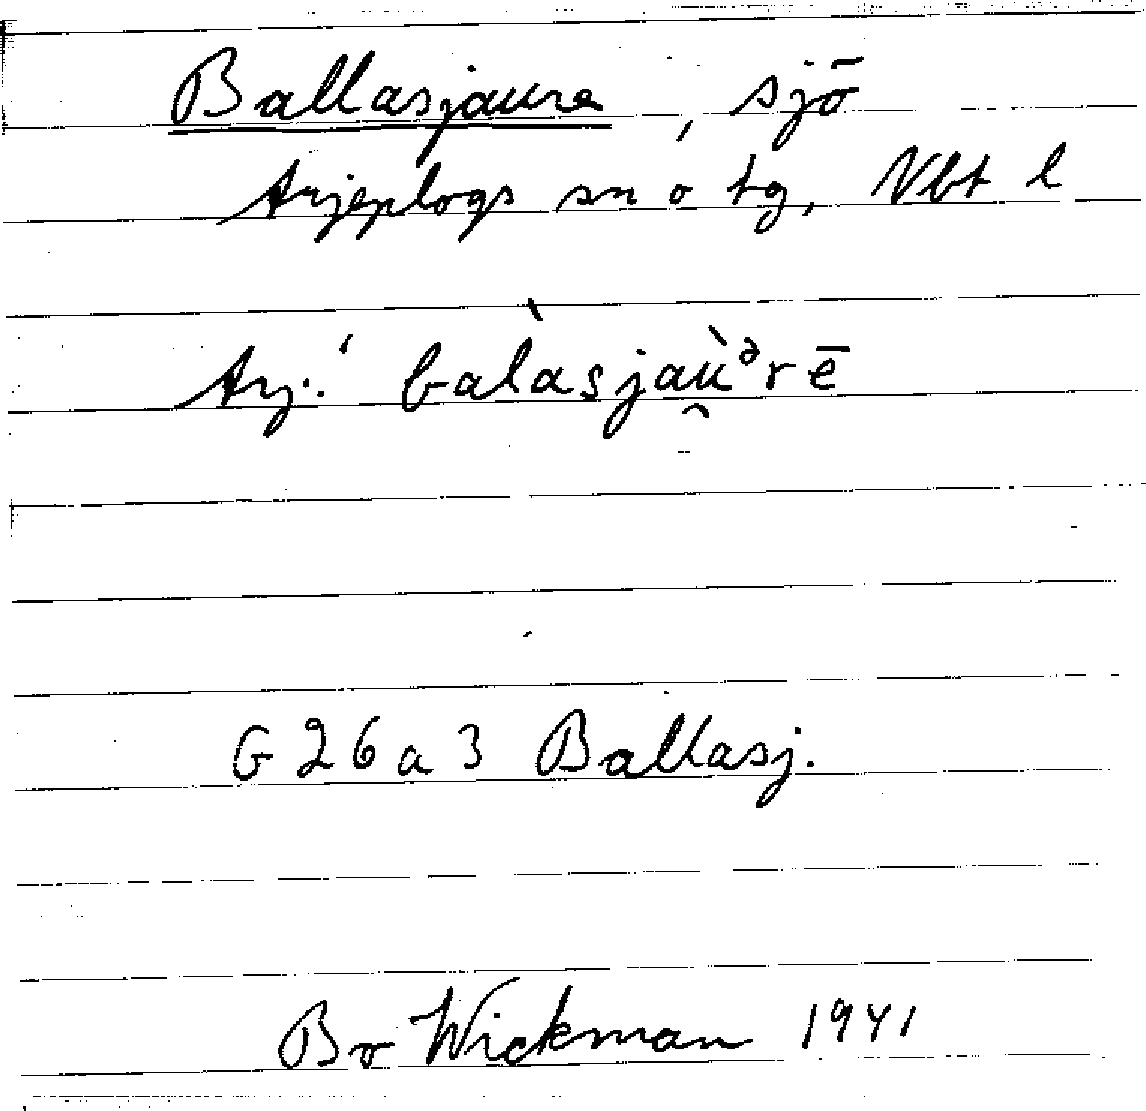 Ballasjaure, sjö
Arjeplogs sn o tg, Vbt l
Arj.: ́balàsjaù̯ᵊrē
G 26 a 3 Ballasj.
Bo Wickman 1941